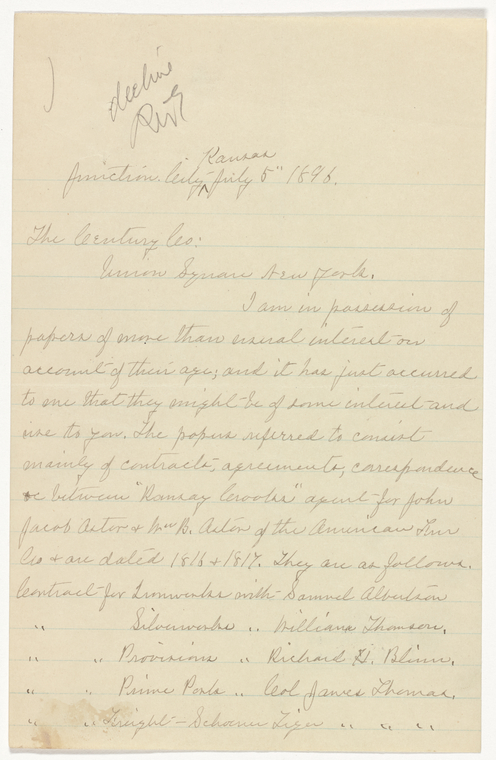 decline
Kansas
Junction City July 5" 1896.
The Century Co:
Union Square New York.
I am in possession of
papers of more than usual interest on
account of their age; and it has just occurred
to me that they might be of some interest and
use to you. The papers referred to consist
mainly of contracts, agreements, correspondence
&c between "Ramsay Crooks" agent for John
Jacob Astor & Wm B. Astor of the American Fur
Co & are dated 1816 & 1817. They are as follows.
Contract for Ironworks with Samuel Abbotson
" Silverworks " William Thomson,
" " Provisions " Richard H. Blinn,
" " Prime Pork " Col James Thomas,
" " Freight — Schooner Tiger " " "